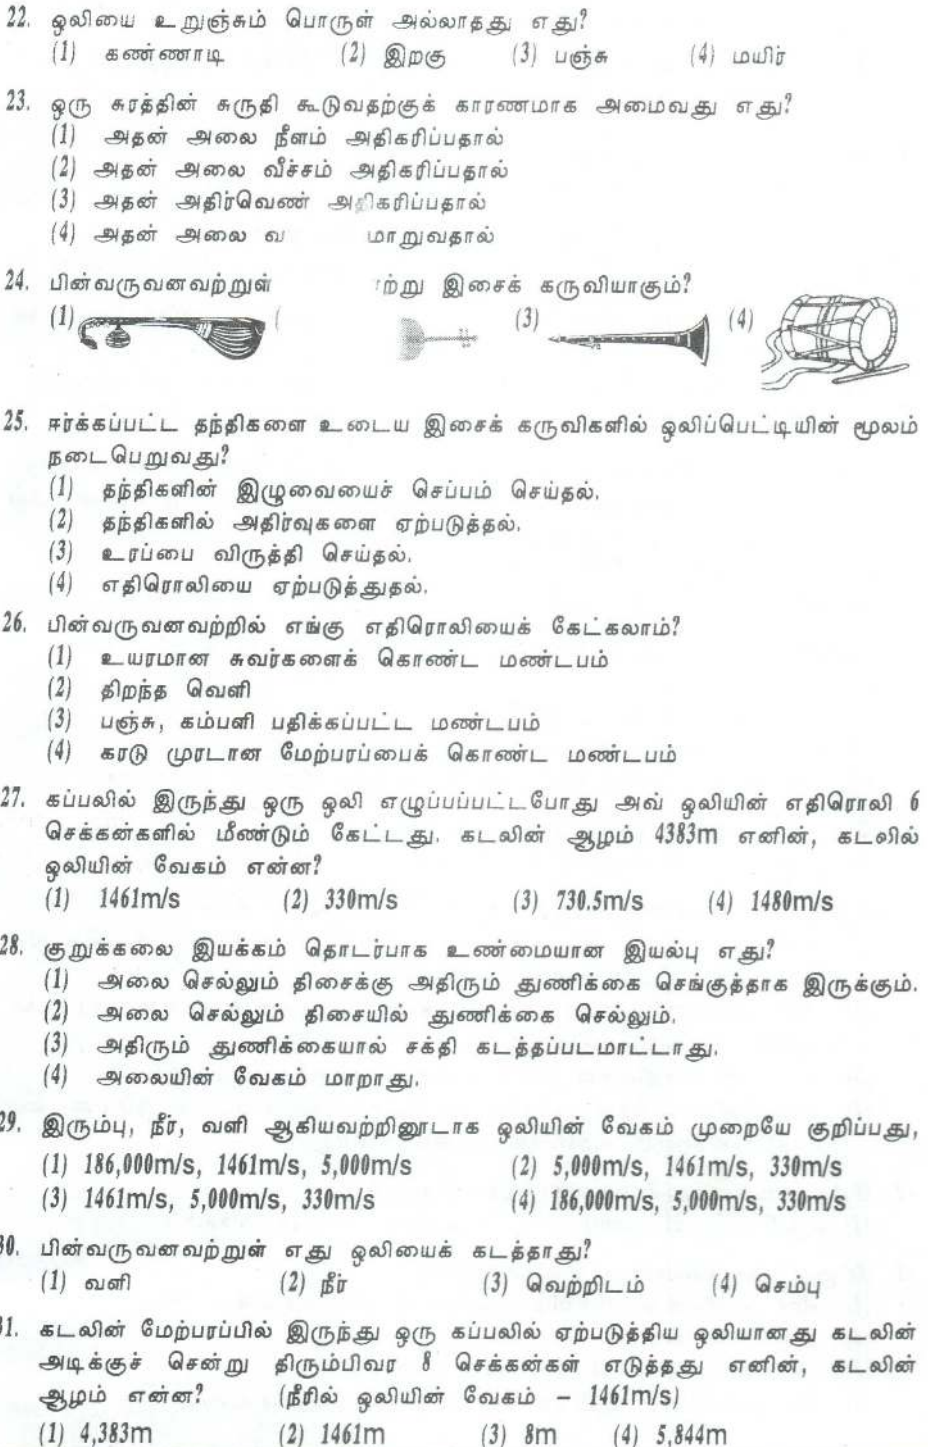 22. ஒலியை உறுஞ்சும் பொருள் அல்லாதது எது?
(1) கண்ணாடி (2) இறகு (3) பஞ்சு (4) மயிர்
23. ஒரு சுரத்தின் சுருதி கூடுவதற்குக் காரணமாக அமைவது எது?
(1) அதன் அலை நீளம் அதிகரிப்பதால்
(2) அதன் அலை வீச்சம் அதிகரிப்பதால்
(3) அதன் அதிர்வெண் அதிகரிப்பதால்
(4) அதன் அலை வ மாறுவதால்
24. பின்வருவனவற்றுள் ற்று இசைக் கருவியாகும்?
(1) ( (3) (4)
25. ஈர்க்கப்பட்ட தந்திகளை உடைய இசைக் கருவிகளில் ஒலிப்பெட்டியின் மூலம்
நடைபெறுவது?
(1) தந்திகளின் இழுவையைச் செப்பம் செய்தல்.
(2) தந்திகளில் அதிர்வுகளை ஏற்படுத்தல்.
(3) உரப்பை விருத்தி செய்தல்.
(4) எதிரொலியை ஏற்படுத்துதல்.
26. பின்வருவனவற்றில் எங்கு எதிரொலியைக் கேட்கலாம்?
(1) உயரமான சுவர்களைக் கொண்ட மண்டபம்
(2) திறந்த வெளி
(3) பஞ்சு, கம்பளி பதிக்கப்பட்ட மண்டபம்
(4) கரடு முரடான மேற்பரப்பைக் கொண்ட மண்டபம்
27. கப்பலில் இருந்து ஒரு ஒலி எழுப்பப்பட்டபோது அவ் ஒலியின் எதிரொலி 6
செக்கன்களில் மீண்டும் கேட்டது. கடலின் ஆழம் 4383m எனின், கடலில்
ஒலியின் வேகம் என்ன?
(1) 1461m/s (2) 330m/s (3) 730.5m/s (4) 1480m/s
28. குறுக்கலை இயக்கம் தொடர்பாக உண்மையான இயல்பு எது?
(1) அலை செல்லும் திசைக்கு அதிரும் துணிக்கை செங்குத்தாக இருக்கும்.
(2) அலை செல்லும் திசையில் துணிக்கை செல்லும்.
(3) அதிரும் துணிக்கையால் சக்தி கடத்தப்படமாட்டாது.
(4) அலையின் வேகம் மாறாது.
29. இரும்பு, நீர், வளி ஆகியவற்றினூடாக ஒலியின் வேகம் முறையே குறிப்பது,
(1) 186,000m/s, 1461m/s, 5,000m/s (2) 5,000m/s, 1461m/s, 330m/s
(3) 1461m/s, 5,000m/s, 330m/s (4) 186,000m/s, 5,000m/s, 330m/s
30. பின்வருவனவற்றுள் எது ஒலியைக் கடத்தாது?
(1) வளி (2) நீர் (3) வெற்றிடம் (4) செம்பு
31. கடலின் மேற்பரப்பில் இருந்து ஒரு கப்பலில் ஏற்படுத்திய ஒலியானது கடலின்
அடிக்குச் சென்று திரும்பிவர 8 செக்கன்கள் எடுத்தது எனின், கடலின்
ஆழம் என்ன? (நீரில் ஒலியின் வேகம் – 1461m/s)
(1) 4,383m (2) 1461m (3) 8m (4) 5,844m